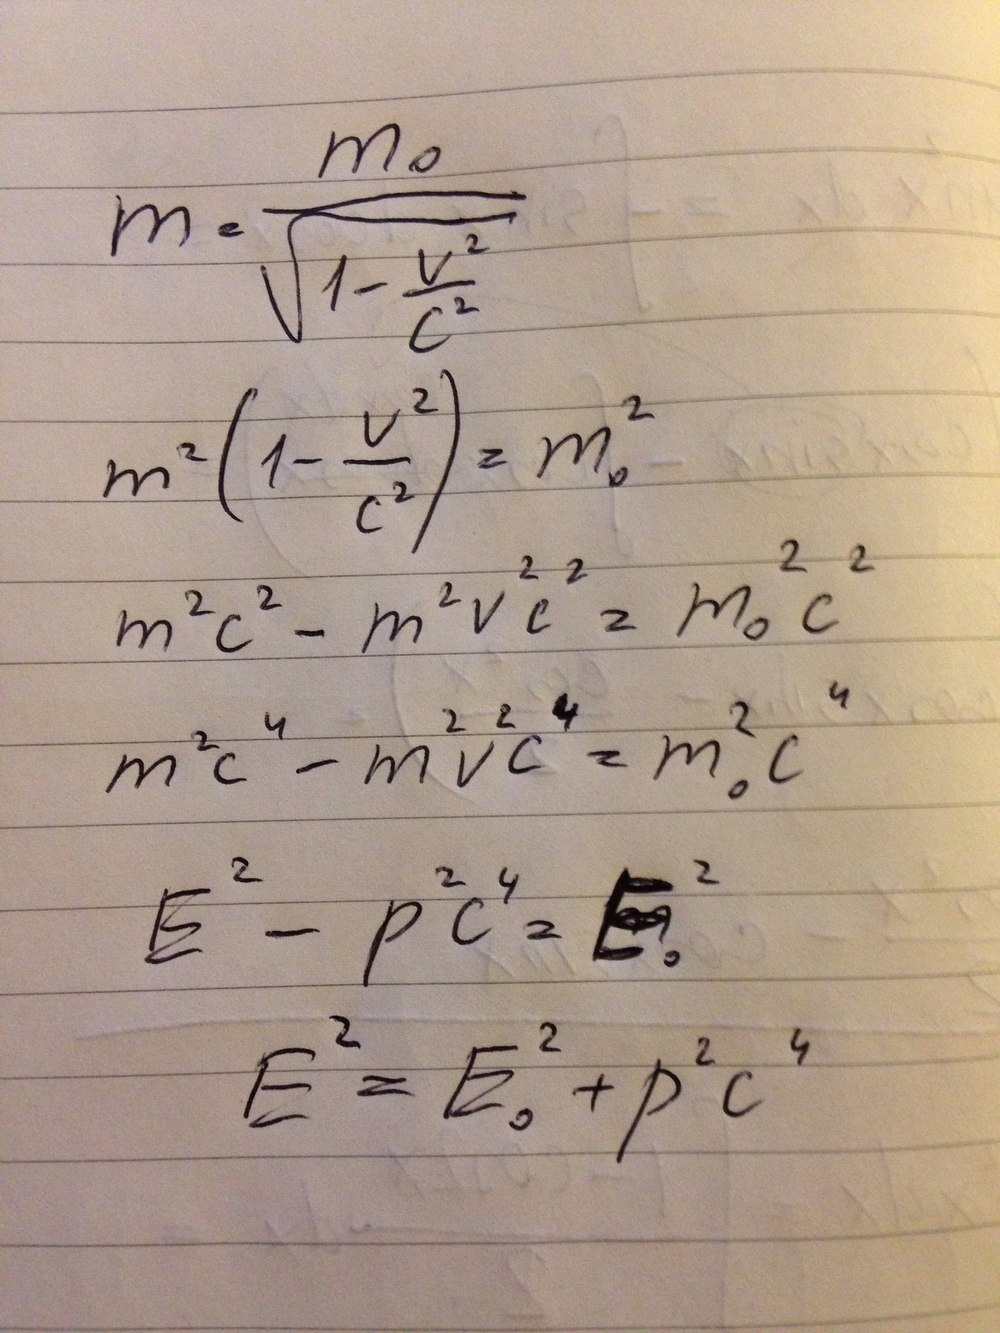 m = m₀ / √(1 - v²/c²)
m² (1 - v²/c²) = m₀²
m²c² - m²v²c² = m₀²c²
m²c⁴ - m²v²c⁴ = m₀²c⁴
E² - p²c⁴ = E₀²
E² = E₀² + p²c⁴